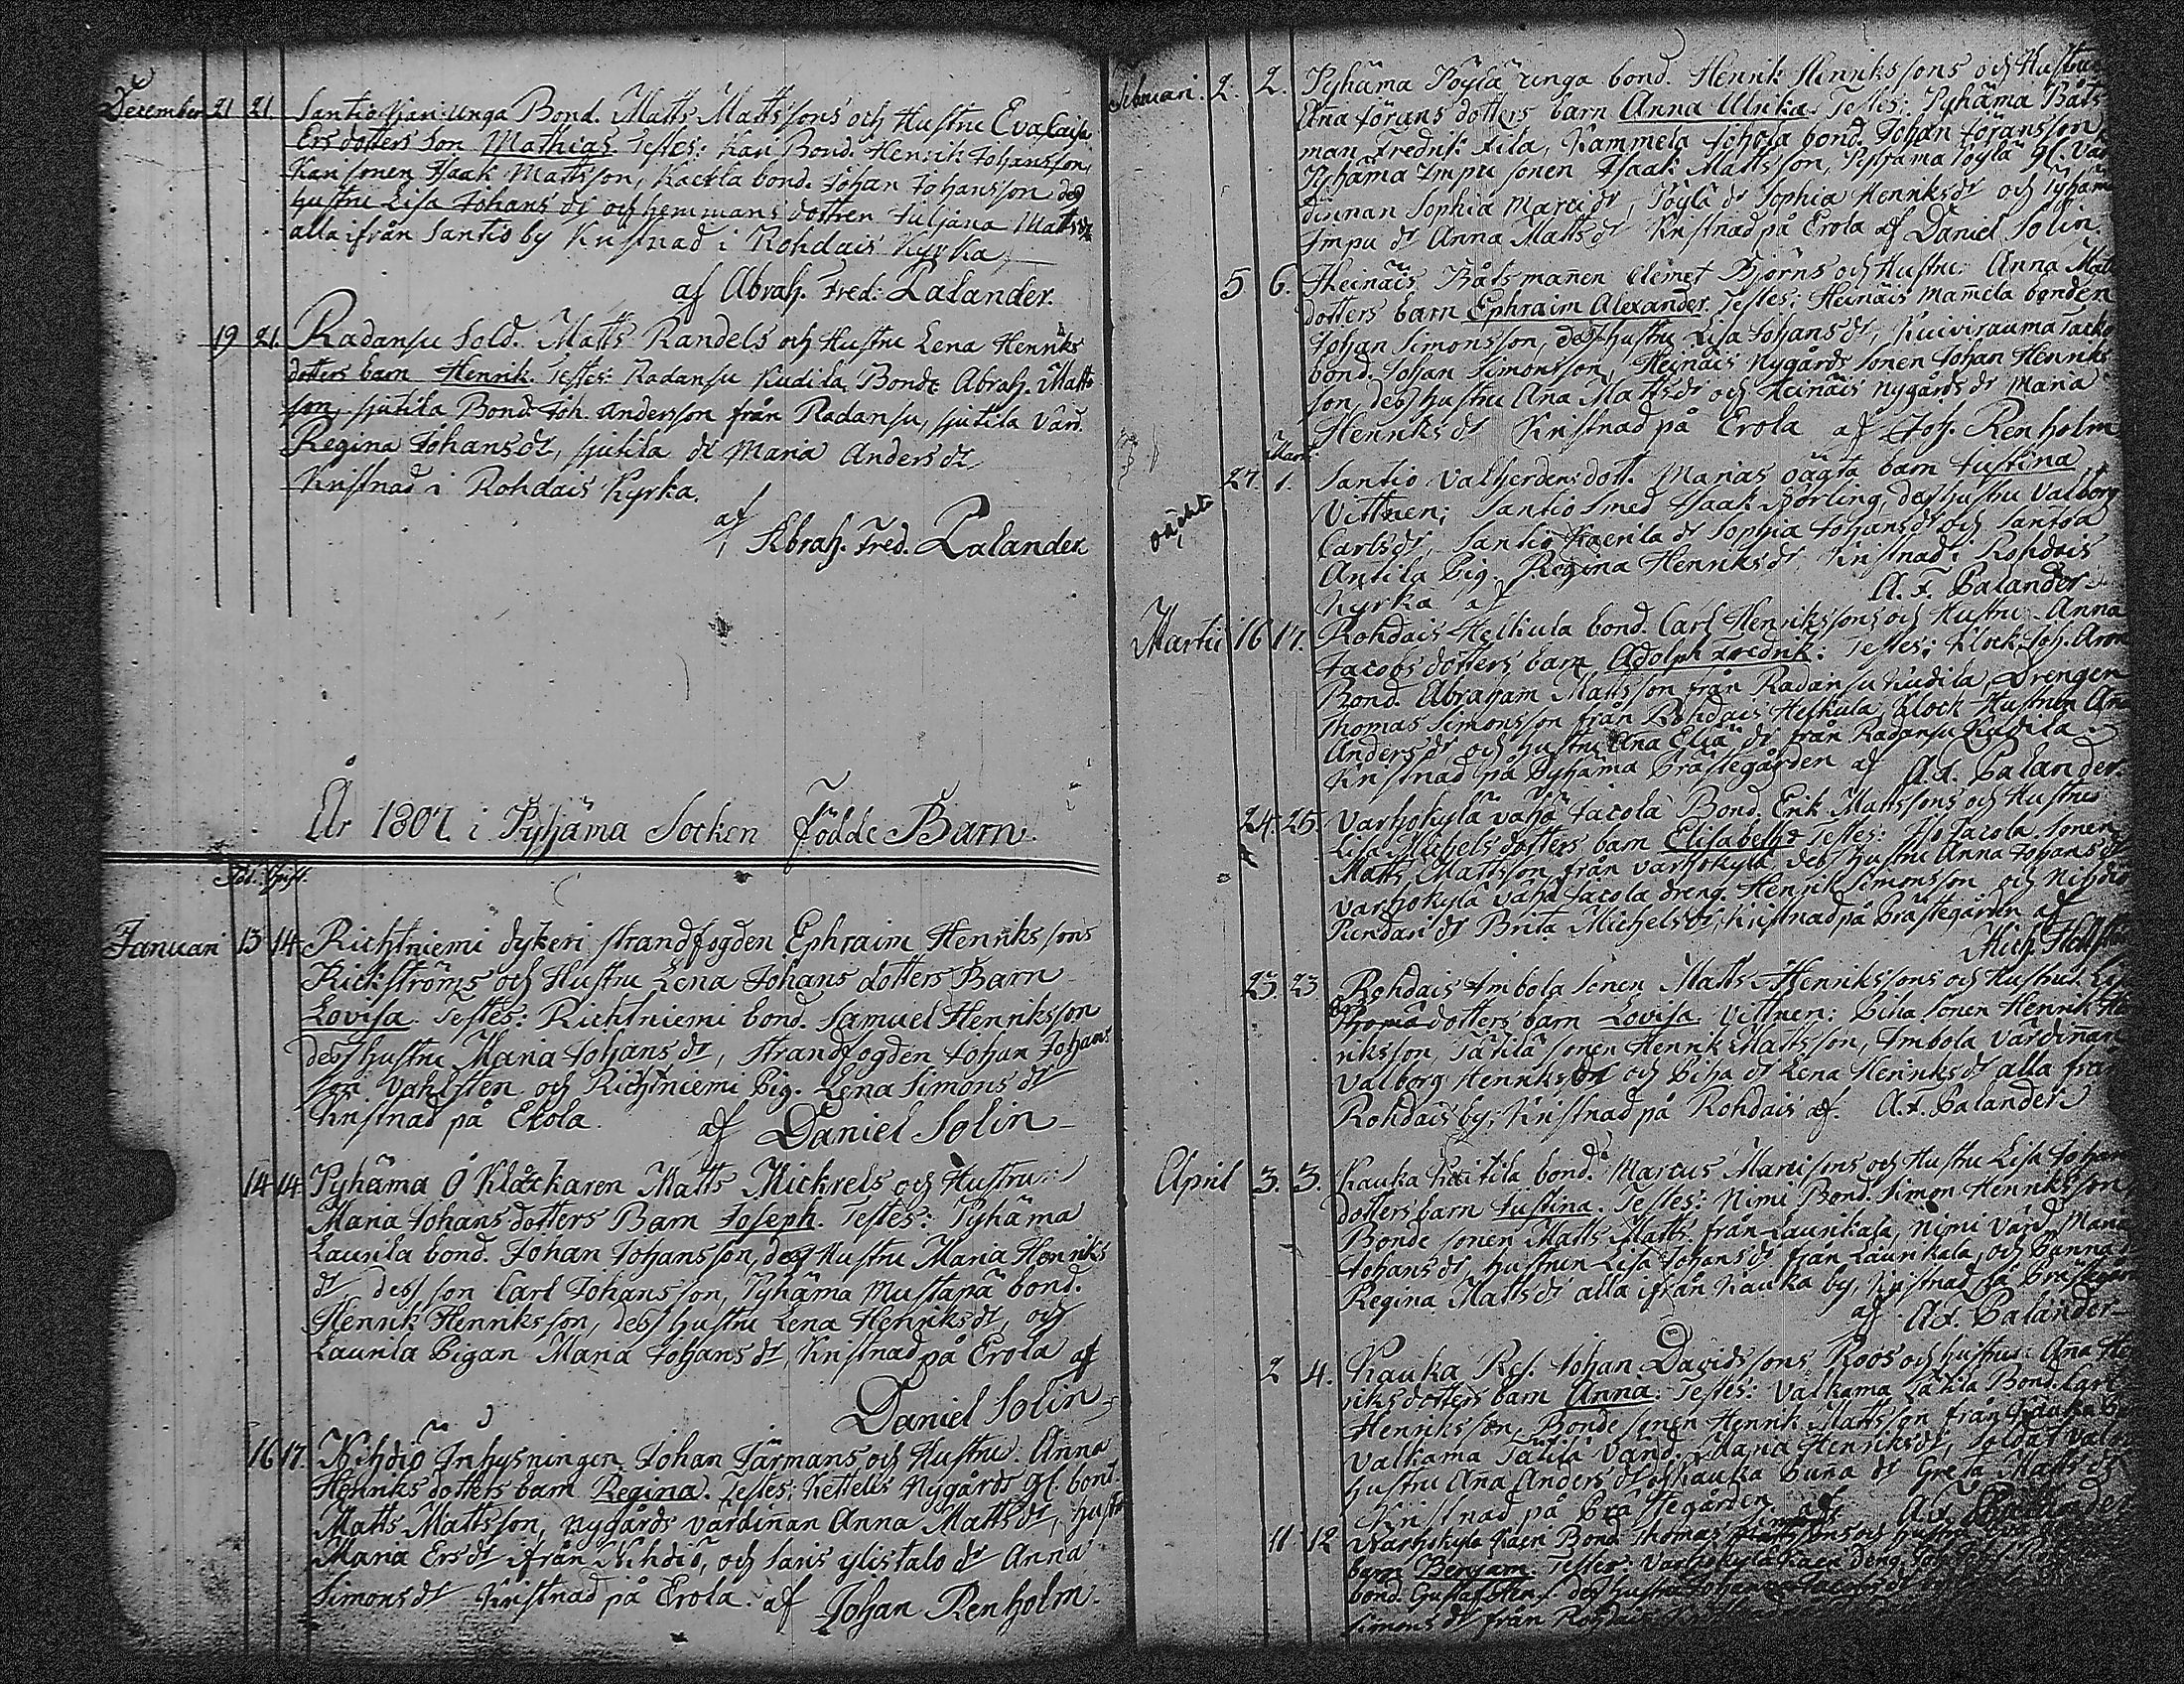 December 21 21. Santio Kan unga Bond. Matts Mattssons och Hustru Eva Caisa
Ersdotters Son Mathias. Testes: Kan Bond. Henrik Johansson,
Kan sonen Isaak Mattsson, Kackla bond. Johan Johansson des
hustru Lisa Johans dr och hemmans dottren Juliana Matts dr
alla ifrån Santio by Kristnad i Rohdais Kyrka
af Abrah. Fred: Lalander.
19 21. Radansu Sold. Matts Randels och Hustru Lena Henriks
dotters barn Henrik. Testes: Radansu Kudila Bonde Abrah. Matts
son, sjutila Bond. Joh. Andersson från Radansu, sjutila Värd.
Regina Johans dr, sjutila dr Maria Anders dr
Kristnad i Rohdais Kyrka.
af Abrah. Fred. Lalander
År 1807 i Pyhäma Socken födde Barn.
Föd. Christ.
Januari 13 14 Richtniemi dykeri strandfogden Ephraim Henrikssons
Rickströms och Hustru Lena Johans dotters Barn
Lovisa. Testes: Richtniemi bond. Samuel Henriksson
dess hustru Maria Johans dr, strandfogden Johan Johans
son Vahlsten och Richtniemi Pig. Lena Simons dr
Kristnad på Erola. af Daniel Solin
14 14 Pyhäma Å Klåckaren Matts Mickrels och Hustru
Maria Johans dotters Barn Joseph. Testes: Pyhäma
Laurila bond. Johan Johansson, dess Hustru Maria Henriks
dr, dess son Carl Johansson, Pyhäma Mustapä bond.
Henrik Henriksson, dess hustru Lena Henriks dr, och
Laurila Pigan Maria Johans dr, Kristnad på Erola af
Daniel Solin
16 17. Nihdiö Inhysningen Johan Järmans och Hustru Anna
Henriks dotters barn Regina. Testes: Ketteles Nygårds gl. bond.
Matts Mattsson, nygårds värdinan Anna Matts dr, hustr.
Maria Ers dr ifrån Nihdiö, och Saris ylistalo dr Anna
Simons dr Kristnad på Erola. af Johan Renholm.
Februari. 2. 2. Pyhäma Pöylä unga bond. Henrik Henrikssons och Hustru
Ana Jörans dotters barn Anna Ulrika. Testes: Pyhäma Båts
man Fredrik Lila, Kammela Johola bond. Johan Jöransson,
Pyhäma Impu sonen Isaak Mattsson, Pyhäma Pöylä gl. Vär
dinnan Sophia Marci dr, Pöylä dr Sophia Henriks dr och Pyhäma
Impu dr Anna Matts dr Kristnad på Erola af Daniel Solin.
5 6. Heinäis Båtsmanen Clemet Björns och Hustru Anna Matts
dotters barn Ephraim Alexander. Testes: Heinäis mamela bonden
Johan Simonsson, dess hustru Lisa Johans dr, Kuivirauma
bond. Johan Simonsson, Heinäis Nygårds sonen Johan Henriks
son, dess hustru Ana Matts dr och Heinäis nygårds dr Maria
Henriks dr Kristnad på Erola af Joh. Renholm
Mart.
27. 1. Santio Valtierdens dott. Marias oägta barn Justina
Vittnen; Santio Smed Isaak Spörling, dess hustru Valborg
oächta Carls dr, Santio Kaerila dr Sophia Johans dr och Santoa
Antila Pig. Regina Henriks dr Kristnad i Rohdais
Kyrka af A. F. Lalander
Martii 16 17. Rohdais Helkula bond. Carl Henrikssons och Hustru Anna
Jacobs dotters barn Adolph Fredrik. Testes; Klock. Joh.
Bond. Abraham Mattsson från Radansu Kudila, Drengen
Thomas Simonsson från Rohdais Helkula, Klock Hustrun
Anders dr och hustru Ana Eliä dr från Radansu Kudila
Kristnad på Pyhäma Prästegården af A.F. Lalander.
24. 25. Varhokylä vaha Jacola Bond. Erik Mattssons och Hustru
Lisa Michels dotters barn Elisabeth. Testes: Iso Jacola sonen
Matts Mattsson från Varhokylä dess hustru Anna Johans dr
Varhokylä vaha Jacola dreng. Henrik Simonsson och Nihdiö
Pendan dr Brita Michels dr, Kristnad på Prästegården af
Mich.
23. 23 Rohdais Imbola Sonen Matts Henrikssons och Hustrus
Thomä dotters barn Lovisa. Vittnen: Piha Sonen Henrik Hen
riksson, Tätilä sonen Henrik Mattsson, Imbola Värdinan
Valborg Henriks dr och Piha dr Lena Henriks dr alla från
Rohdais by, Kristnad på Rohdais af A.F. Lalander
April 3. 3. Kauka bond. Marcus Marcisons och Hustru Lisa Johans
dotters barn Justina. Testes: Nimi Bond. Simon Henriksson
Bonde sonen Matts Matts. från Laurikala, Nimi Värd. Maria
Johans dr, hustrun Lisa Johans dr från Laurikala, och
Regina Matts dr alla ifrån Kauka by, Kristnad på Prästegården
af A.F. Lalander
2 4. Kauka Ref. Johan Davidssons Roos och hustrus Ana Hen
riks dotters barn Anna. Testes: Valkama Tätilä Bond. Carl
Henriksson, Bonde sonen Henrik Mattsson från Kauka
Valkama Tätilä Värd. Maria Henriks dr, Soldat
hustru Ana Anders dr och Kauka dr Greta Matts dr
Kristnad på Prästegården af A.F. Lalander
11 12 Varhokylä Kaeri Bond. Thomas
barn Benjam. Testes: Varhokylä Kaeri
bond. Gustaf
Simons dr från